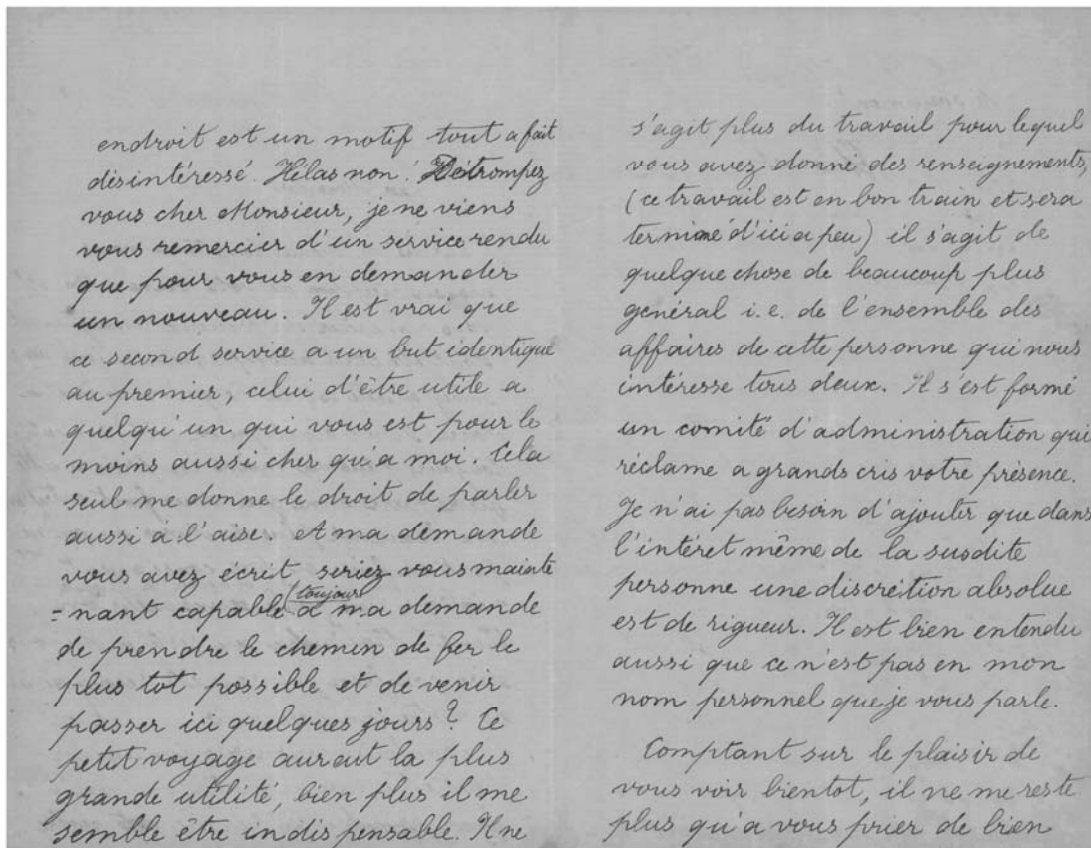 endroit est un motif tout a fait
désintéressé. Hélas non! Détrompez
vous cher Monsieur, je ne viens
vous remercier d'un service rendu
que pour vous en demander
un nouveau. Il est vrai que
ce second service a un but identique
au premier, celui d'être utile a
quelqu'un qui vous est pour le
moins aussi cher qu'a moi. Cela
seul me donne le droit de parler
aussi à l'aise. et ma demande
vous avez écrit, seriez vous mainte
=nant capable (toujour) a ma demande
de prendre le chemin de fer le
plus tot possible et de venir
passer ici quelques jours? Ce
petit voyage aurait la plus
grande utilité, bien plus il me
semble être indispensable. Il ne
s'agit plus du travail pour lequel
vous avez donné des renseignements,
(ce travail est en bon train et sera
terminé d'ici a peu) il s'agit de
quelque chose de beaucoup plus
général i.e. de l'ensemble des
affaires de cette personne qui nous
intéresse tous deux. Il s'est formé
un comité d'administration qui
réclame a grands cris votre présence.
Je n'ai pas besoin d'ajouter que dans
l'intéret même de la susdite
personne une discrétion absolue
est de rigueur. Il est bien entendu
aussi que ce n'est pas en mon
nom personnel que je vous parle.
Comptant sur le plaisir de
vous voir bientot, il ne me reste
plus qu'a vous prier de bien